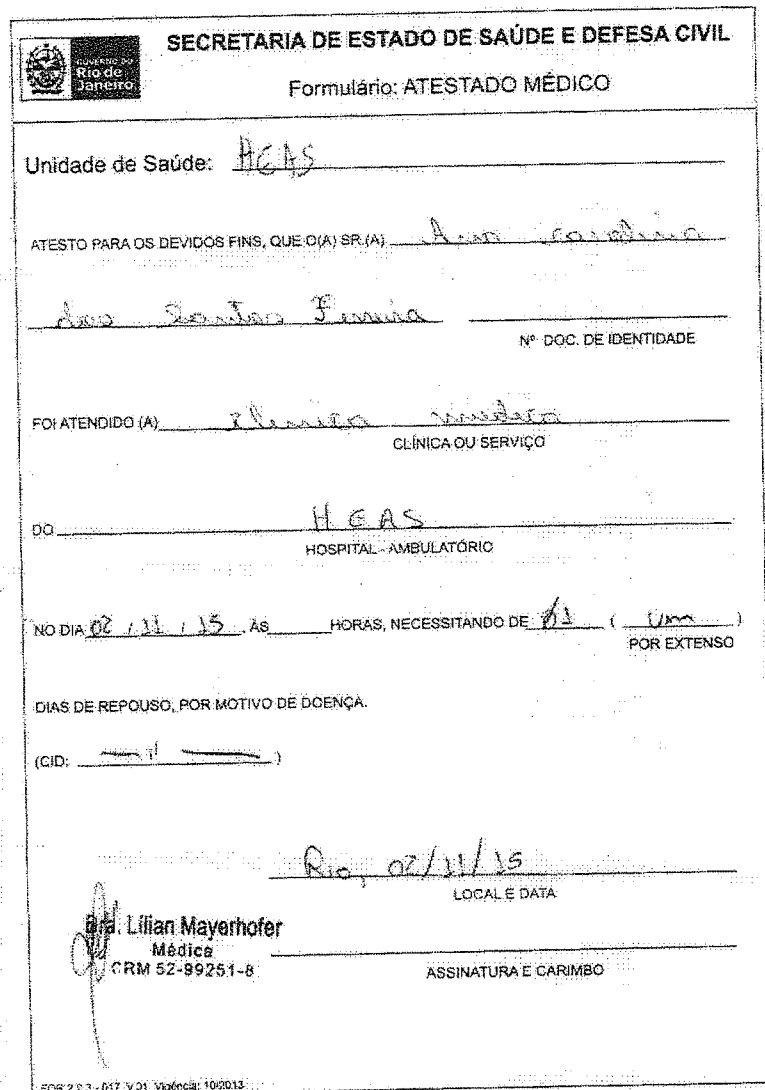 GOVERNO DO
Rio de
Janeiro
SECRETARIA DE ESTADO DE SAÚDE E DEFESA CIVIL
Formulário: ATESTADO MÉDICO
Unidade de Saúde: HEAS
ATESTO PARA OS DEVIDOS FINS, QUE O(A) SR.(A) Ana Carolina
dos Santos Ferreira
Nº DOC. DE IDENTIDADE
FOI ATENDIDO (A) clínica médica
CLÍNICA OU SERVIÇO
DO HEAS
HOSPITAL - AMBULATÓRIO
NO DIA 02 / 11 / 15 ÀS HORAS, NECESSITANDO DE 01 ( Um )
POR EXTENSO
DIAS DE REPOUSO, POR MOTIVO DE DOENÇA.
(CID: )
Rio, 02/11/15
LOCAL E DATA
Dra. Lilian Mayerhofer
Médica
CRM 52-99251-8
ASSINATURA E CARIMBO
FOR 2.2.3 - 017 V.01 Vigência: 10/2013